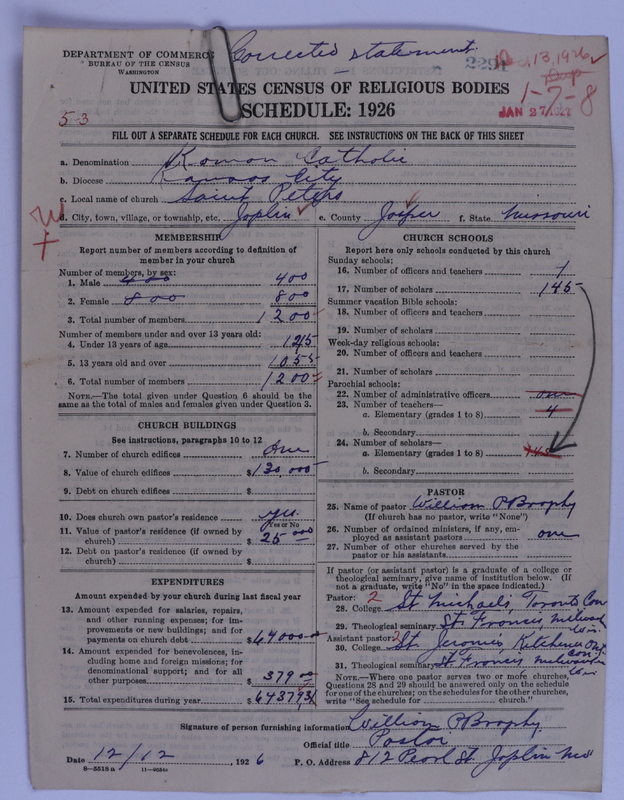 DEPARTMENT OF COMMERCE
BUREAU OF THE CENSUS
WASHINGTON
Corrected statement
2291
13, 1926
1-7-8
JAN 27 1927
UNITED STATES CENSUS OF RELIGIOUS BODIES
SCHEDULE: 1926
5-3
FILL OUT A SEPARATE SCHEDULE FOR EACH CHURCH. SEE INSTRUCTIONS ON THE BACK OF THIS SHEET
a. Denomination Roman Catholic
b. Diocese Kansas City
c. Local name of church Saint Peters
d. City, town, village, or township, etc. Joplin e. County Jasper f. State Missouri
MEMBERSHIP
Report number of members according to definition of member in your church
Number of members, by sex:
1. Male 400 400
2. Female 800 800
3. Total number of members 1200
Number of members under and over 13 years old:
4. Under 13 years of age 125
5. 13 years old and over 1055
6. Total number of members 1200
NOTE.—The total given under Question 6 should be the same as the total of males and females given under Question 3.
CHURCH BUILDINGS
See instructions, paragraphs 10 to 12
7. Number of church edifices One
8. Value of church edifices $130,000
9. Debt on church edifices $
10. Does church own pastor's residence yes.
Yes or No
11. Value of pastor's residence (if owned by church) $25000
12. Debt on pastor's residence (if owned by church) $
EXPENDITURES
Amount expended by your church during last fiscal year
13. Amount expended for salaries, repairs, and other running expenses; for improvements or new buildings; and for payments on church debt $64000
14. Amount expended for benevolences, including home and foreign missions; for denominational support; and for all other purposes 379
15. Total expenditures during year $
CHURCH SCHOOLS
Report here only schools conducted by this church
Sunday schools:
16. Number of officers and teachers 1
17. Number of scholars 145
Summer vacation Bible schools:
18. Number of officers and teachers
19. Number of scholars
Week-day religious schools:
20. Number of officers and teachers
21. Number of scholars
Parochial schools:
22. Number of administrative officers one
23. Number of teachers—
a. Elementary (grades 1 to 8) 4
b. Secondary
24. Number of scholars—
a. Elementary (grades 1 to 8) 145
b. Secondary
PASTOR
25. Name of pastor William P Brophy
(If church has no pastor, write "None")
26. Number of ordained ministers, if any, employed as assistant pastors one
27. Number of other churches served by the pastor or his assistants
If pastor (or assistant pastor) is a graduate of a college or theological seminary, give name of institution below. (If not a graduate, write "No" in the space indicated.)
Pastor: 2
28. College St Michaels, Toronto Can
29. Theological seminary St Francis Milwaukee Wis.
Assistant pastor: 2
30. College St Jeromes, Kitchener Ont Can
31. Theological seminary St Francis Milwaukee Wis
NOTE.—Where one pastor serves two or more churches, Questions 28 and 29 should be answered only on the schedule for one of the churches; on the schedules for the other churches, write "See schedule for church."
Signature of person furnishing information William P Brophy
Official title Pastor
Date 12/12, 1926 P. O. Address 812 Pearl St Joplin Mo
8-5518a 11-9054